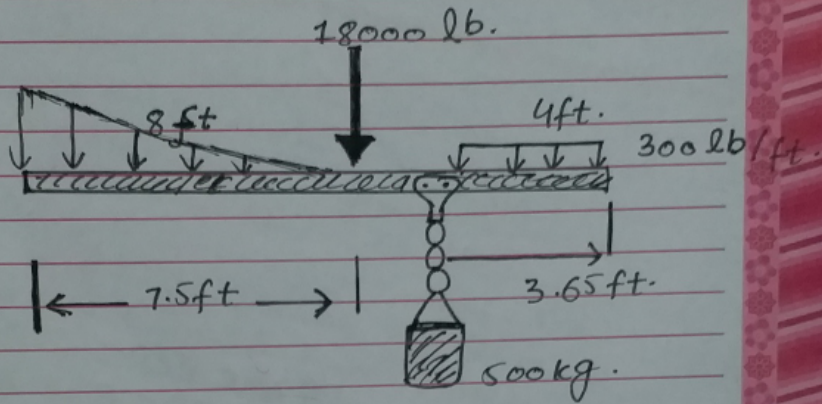 18000 lb.
8 ft
4ft.
300 lb/ft.
7.5ft
3.65ft.
500kg.